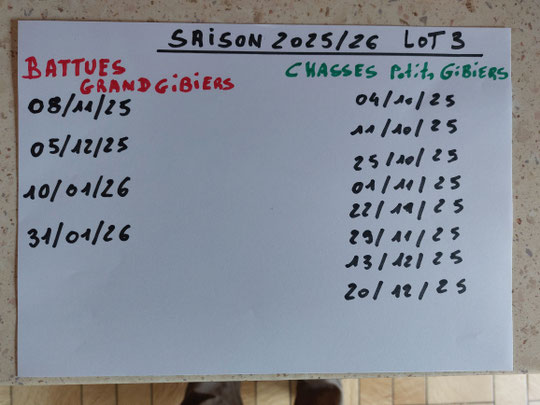 SAISON 2025/26 LOT 3
BATTUES
GRAND GIBIERS
08/11/25
05/12/25
10/01/26
31/01/26
CHASSES Petits GIBIERS
04/10/25
11/10/25
25/10/25
01/11/25
22/11/25
29/11/25
13/12/25
20/12/25